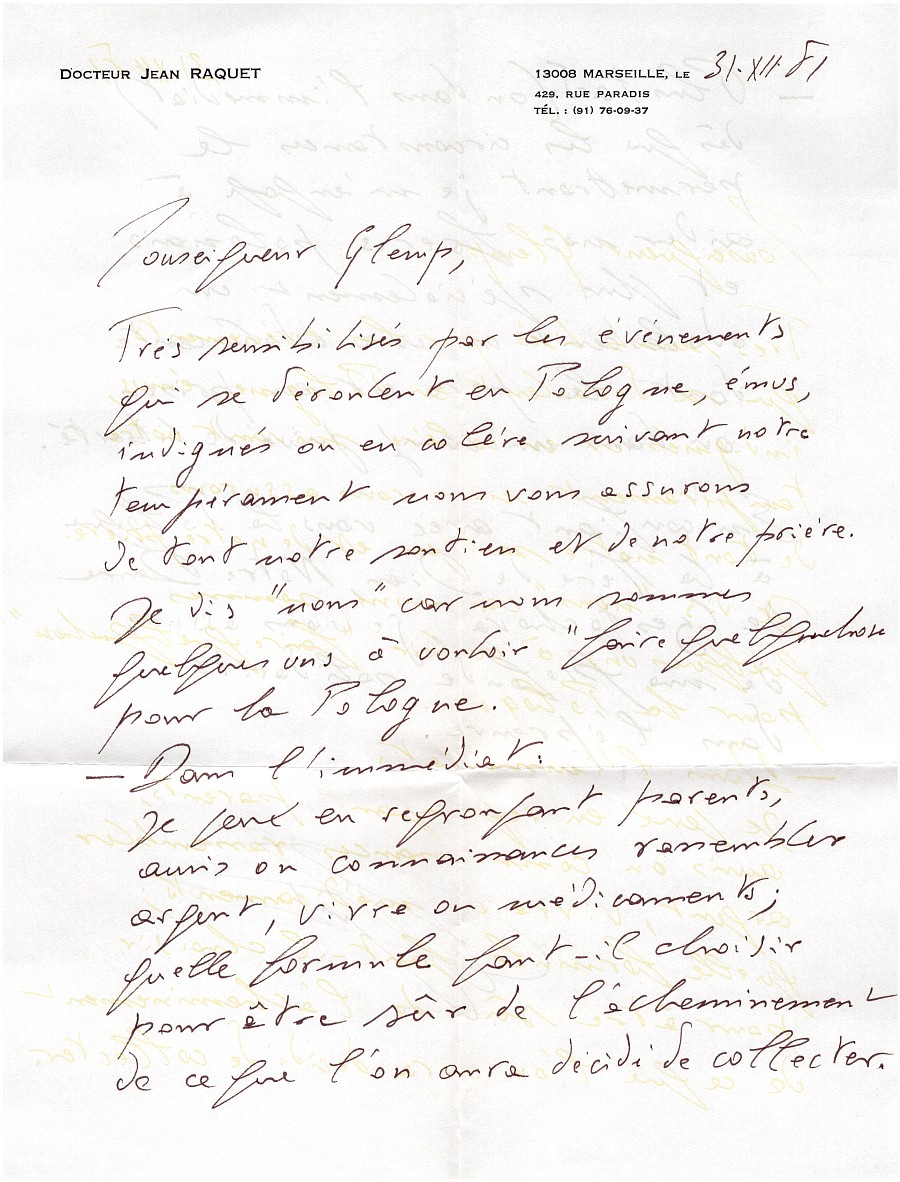 DOCTEUR JEAN RAQUET
13008 MARSEILLE, LE 31.XII.81
429, RUE PARADIS
TÉL. : (91) 76-09-37
Monseigneur Glemp,
Très sensibilisés par les événements
qui se déroulent en Pologne, émus,
indignés ou en colère suivant notre
tempérament nous vous assurons
de tout notre soutien et de notre prière.
Je dis "nous" car nous sommes
quelques uns à vouloir "faire quelquechose"
pour la Pologne.
— Dans l'immédiat :
Je peux en regroupant parents,
amis ou connaissances rassembler
argent, vivre ou médicaments ;
quelle formule faut-il choisir
pour être sûr de l'écheminement
de ce que l'on aura décidé de collecter.